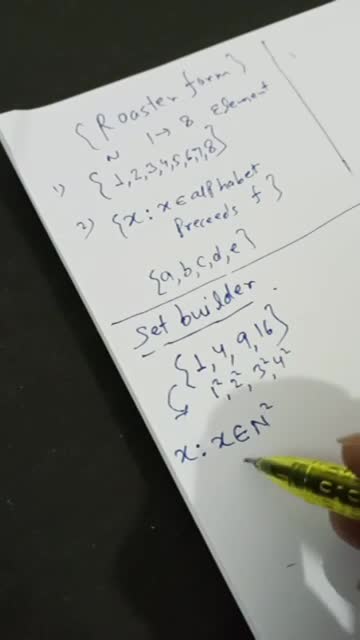 {Roaster form}
N 1 → 8 Element
1) {1,2,3,4,5,6,7,8}
2) {x : x ∈ alphabet
Preceeds f}
{a,b,c,d,e}
Set builder.
{1,4,9,16}
1², 2², 3², 4²
x : x ∈ N²